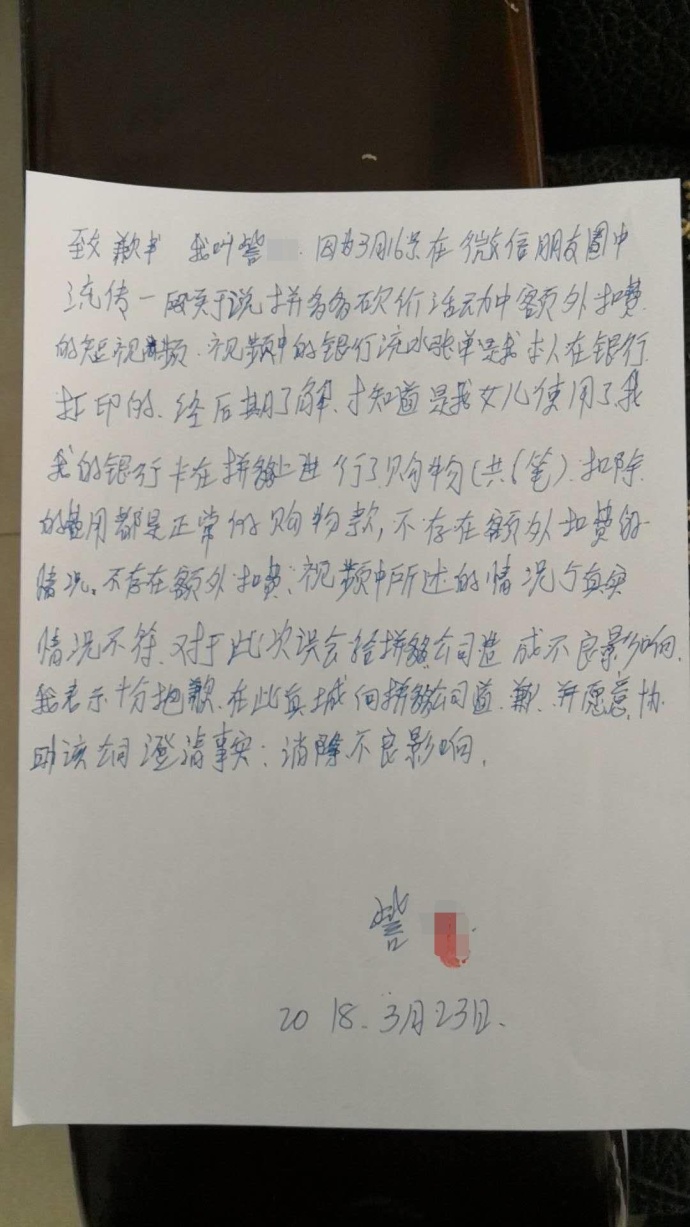 致歉书 我叫訾 因为3月16号在微信朋友圈中
流传一段关于说拼多多砍价活动中额外扣费
的短视频.视频中的银行流水账单是我本人在银行
打印的.经后期了解.才知道是我女儿使用了我
我的银行卡在拼多多上进行了购物(共6笔).扣除
的费用都是正常的购物款,不存在额外扣费的
情况。不存在额外扣费;视频中所述的情况与真实
情况不符.对于此次误会给拼多多公司造成不良影响.
我表示十分抱歉.在此真城向拼多多公司道歉.并愿意协
助该公司澄清事实;消除不良影响.
訾
2018.3月23日.